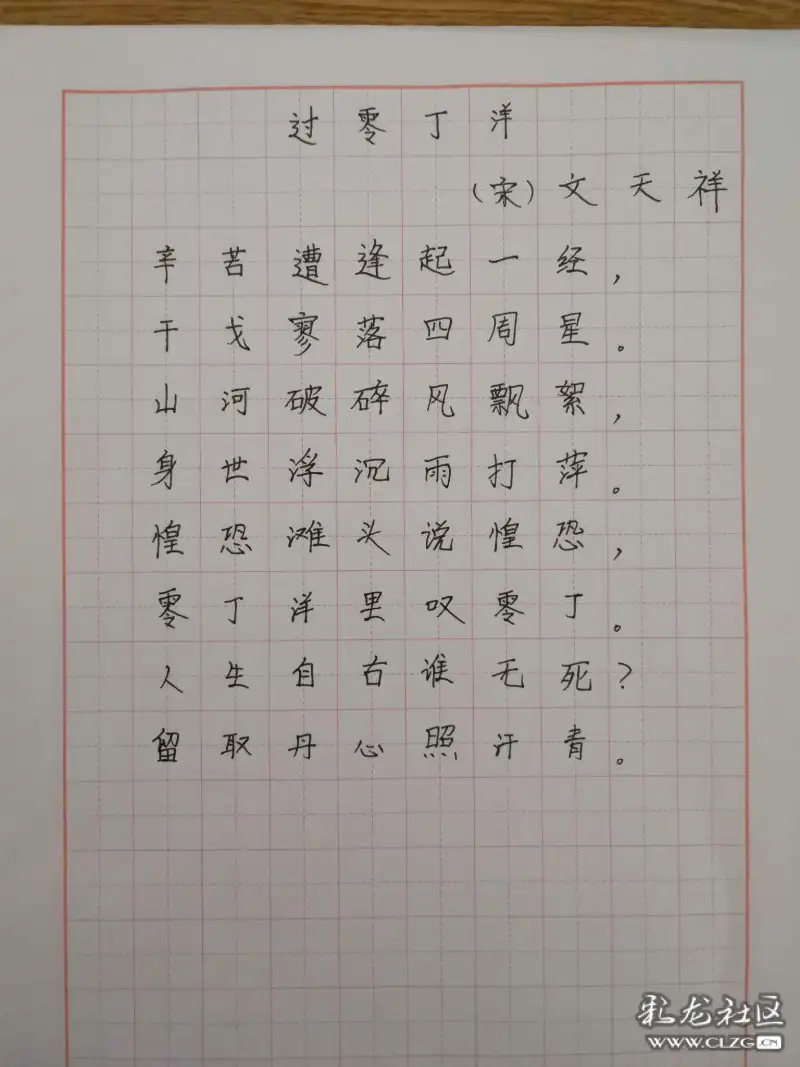 过零丁洋
(宋)文天祥
辛苦遭逢起一经,
干戈寥落四周星。
山河破碎风飘絮,
身世浮沉雨打萍。
惶恐滩头说惶恐,
零丁洋里叹零丁。
人生自古谁无死?
留取丹心照汗青。
彩龙社区
WWW.CLZG.CN